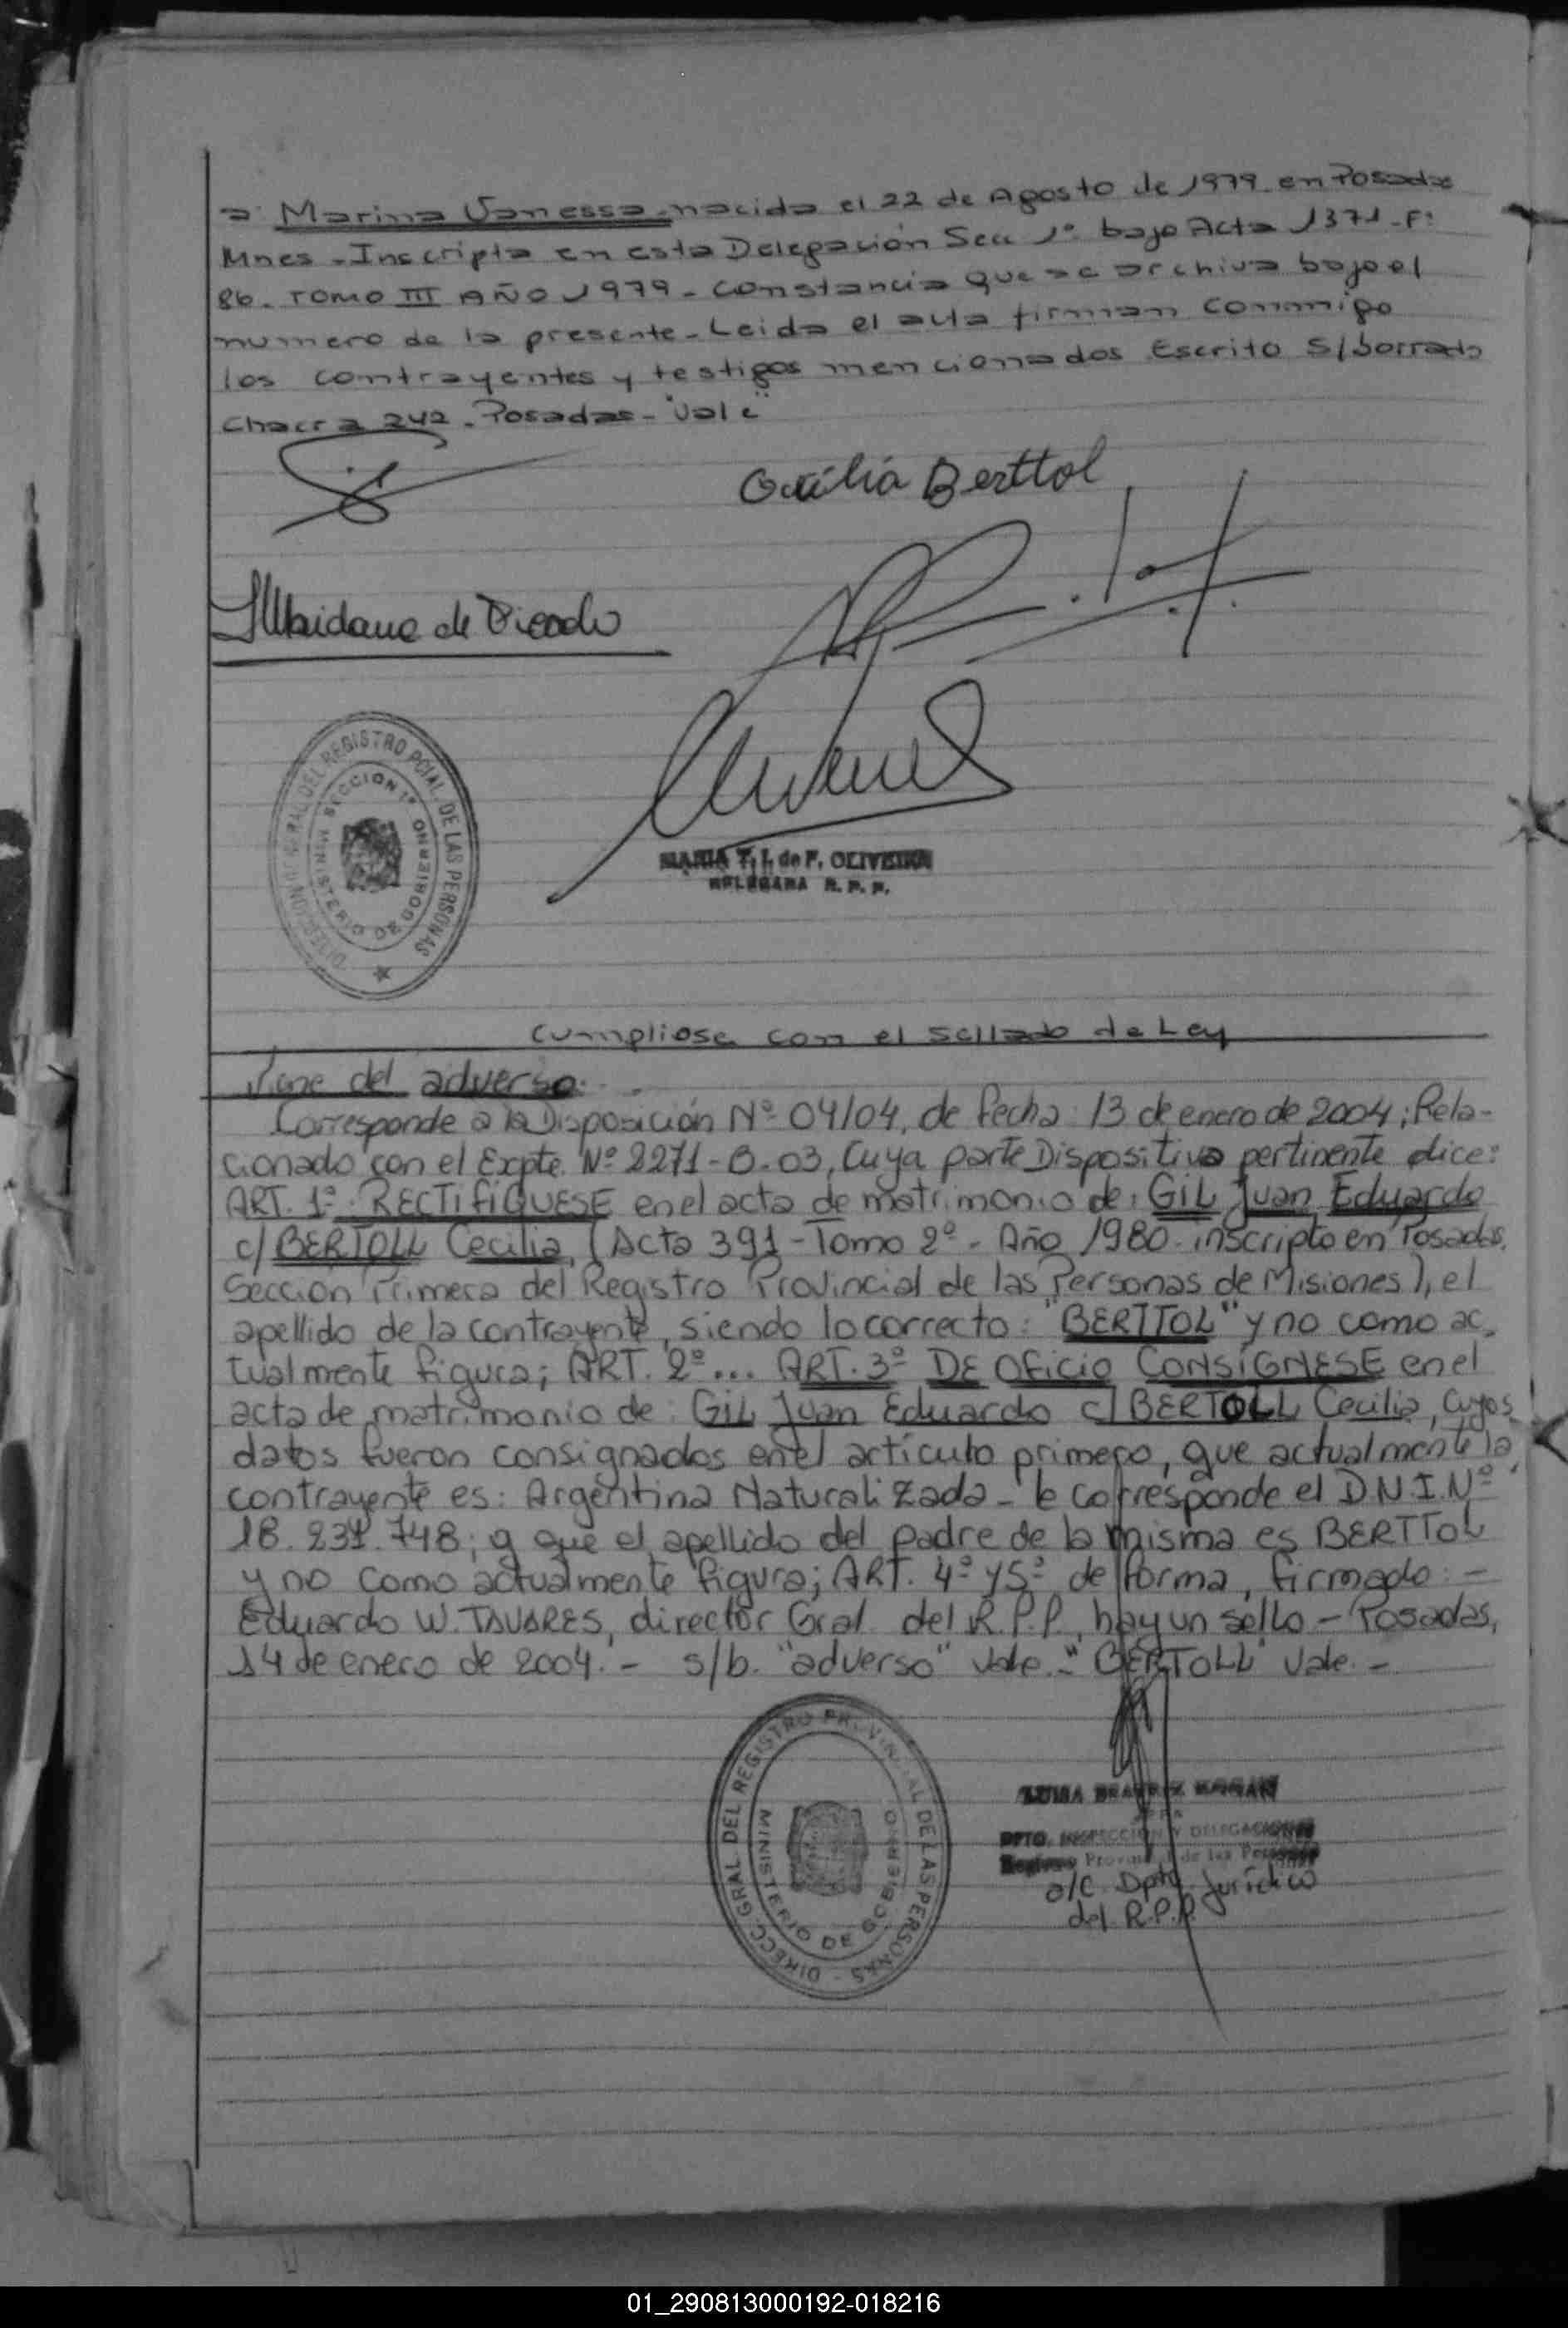 a: Marina Vanessa nacida el 22 de Agosto de 1979 en Posadas
Mnes - Inscripta en esta Delegación Secc 1º bajo Acta 1371 - Fº
86 - Tomo III Año 1979 - constancia que se archiva bajo el
numero de la presente - Leida el acta firman conmigo
los contrayentes y testigos mencionados Escrito s/borrado
Chacra 242 - Posadas - "Vale"
Cecilia Berttol
Maidana de
DIRECCION GENERAL DEL REGISTRO PCIAL. DE LAS PERSONAS
SECCION 1ª
MINISTERIO DE GOBIERNO
MARIA T. I. de F. OLIVEIRA
DELEGADA R. P. P.
Cumpliose con el sellado de Ley
Viene del adverso:
Corresponde a la Disposición Nº 04/04, de fecha 13 de enero de 2004; Rela-
cionado con el Expte. Nº 2271-B-03, Cuya parte Dispositiva pertinente dice:
ART. 1º: RECTIFIQUESE en el acta de matrimonio de: GIL Juan Eduardo
c/ BERTOLL Cecilia, (Acta 391 - Tomo 2º - Año 1980 - inscripto en Posadas,
Sección Primera del Registro Provincial de las Personas de Misiones), el
apellido de la contrayente, siendo lo correcto: "BERTTOL" y no como ac-
tualmente figura; ART. 2º... ART. 3º DE OFICIO CONSÍGNESE en el
acta de matrimonio de: GIL Juan Eduardo c/ BERTOLL Cecilia, cuyos
datos fueron consignados en el artículo primero, que actualmente la
contrayente es: Argentina Naturalizada - le corresponde el D.N.I. Nº
18.231.748; y que el apellido del padre de la misma es BERTTOL
y no como actualmente figura; ART. 4º y 5º de forma, firmado: -
Eduardo W. TAVARES, director Gral. del R.P.P. hay un sello - Posadas,
14 de enero de 2004. - s/b. "adverso" Vale. - "BERTOLL" Vale. -
DIRECC. GRAL. DEL REGISTRO PROVINCIAL DE LAS PERSONAS
MINISTERIO DE GOBIERNO
LUISA BEATRIZ
JEFA
DPTO. INSPECCION Y DELEGACIONES
Registro Provincial de las Personas
a/c Dpto. Jurídico
del R.P.P.
01_290813000192-018216